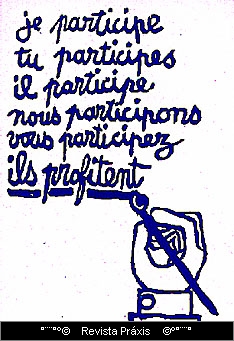 je participe
tu participes
il participe
nous participons
vous participez
ils profitent
°¨¨°º© Revista Práxis ©º°¨¨°